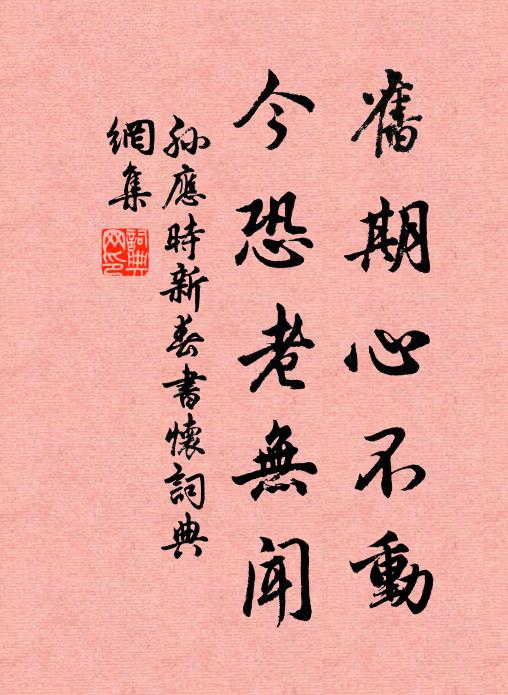 舊期心不動
今恐老無聞
孫應時新春書懷詞典
網集
詞典
网印